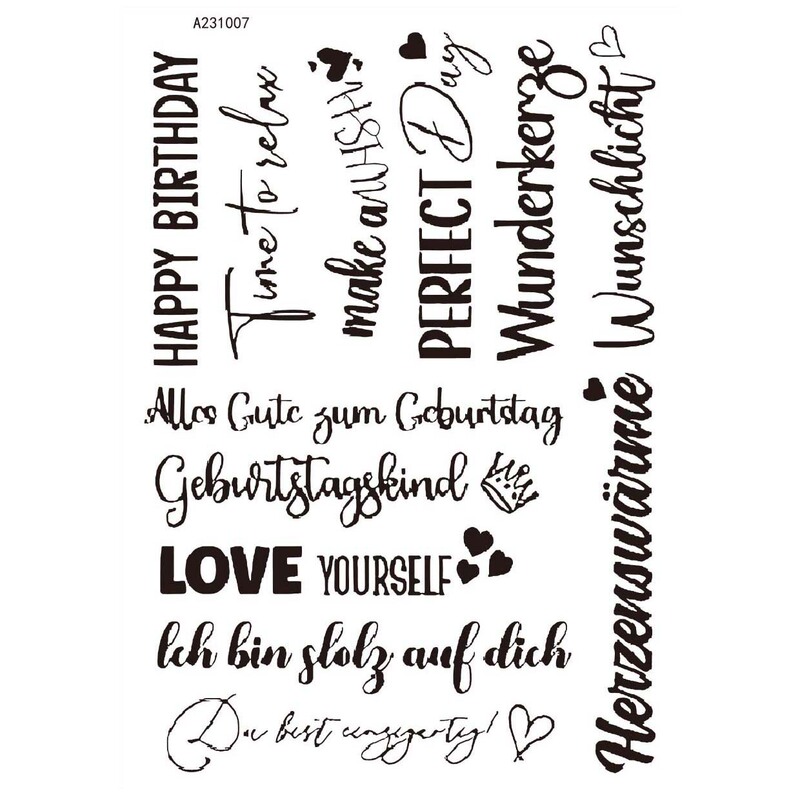 A231007
HAPPY BIRTHDAY
Time to relax
make a WISH
PERFECT Day
Wunderkerze
Wunschlicht
Alles Gute zum Geburtstag
Geburtstagskind
LOVE YOURSELF
Ich bin stolz auf dich
Du bist einzigartig!
Herzenswärme